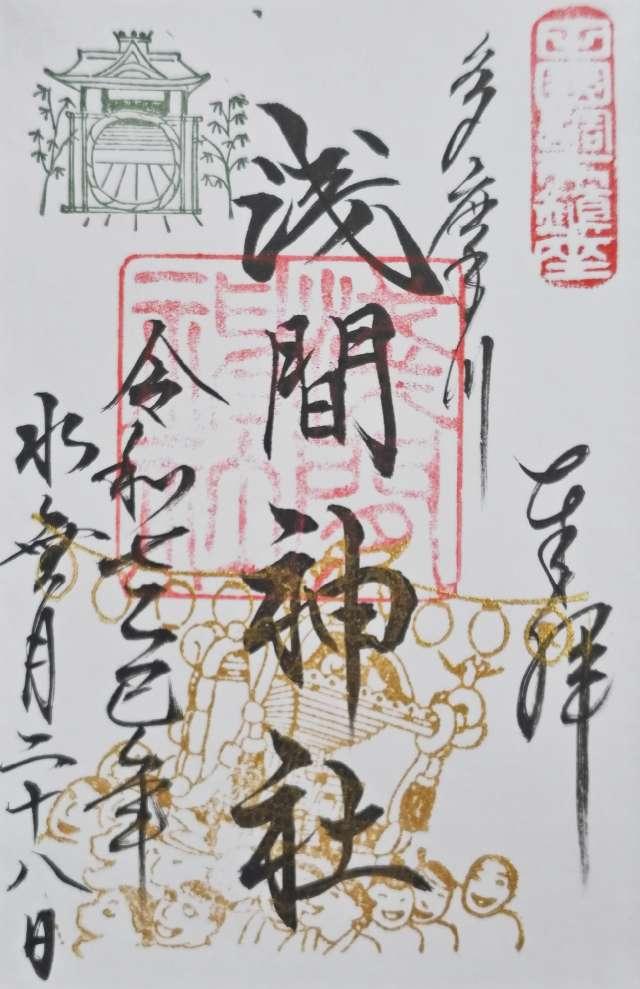 奉拝
多摩川
浅間神社
令和七乙巳年
水無月二十八日
浅間神社